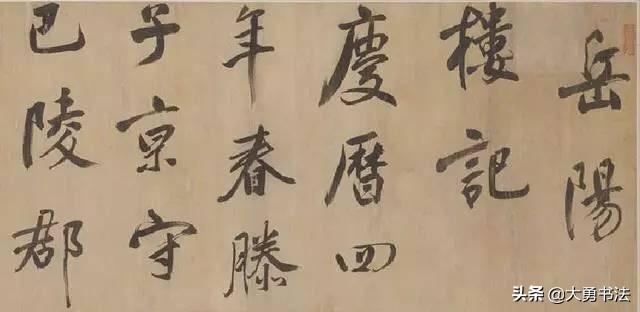 岳陽
樓記
慶曆四
年春滕
子京守
巴陵郡
头条 @大勇书法